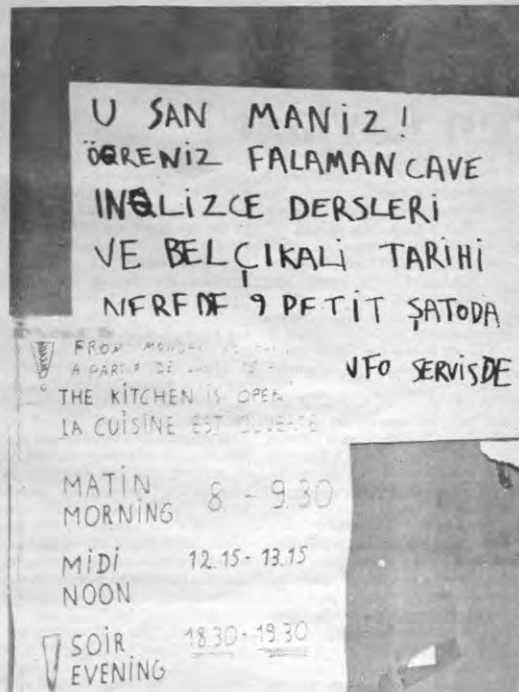 U SAN MANİZ!
ÖĞRENİZ FALAMAN CAVE
INGLİZCE DERSLERİ
VE BELÇIKALİ TARİHİ
NEREDE ? PETİT ŞATODA
VFO SERVİSDE
FROM MONDAY
A PARTIR DE
THE KİTCHEN İS OPEN
LA CUİSİNE EST OUVERTE
MATİN 8 - 9.30
MORNİNG
MİDİ 12.15 - 13.15
NOON
SOİR 18.30 - 19.30
EVENİNG